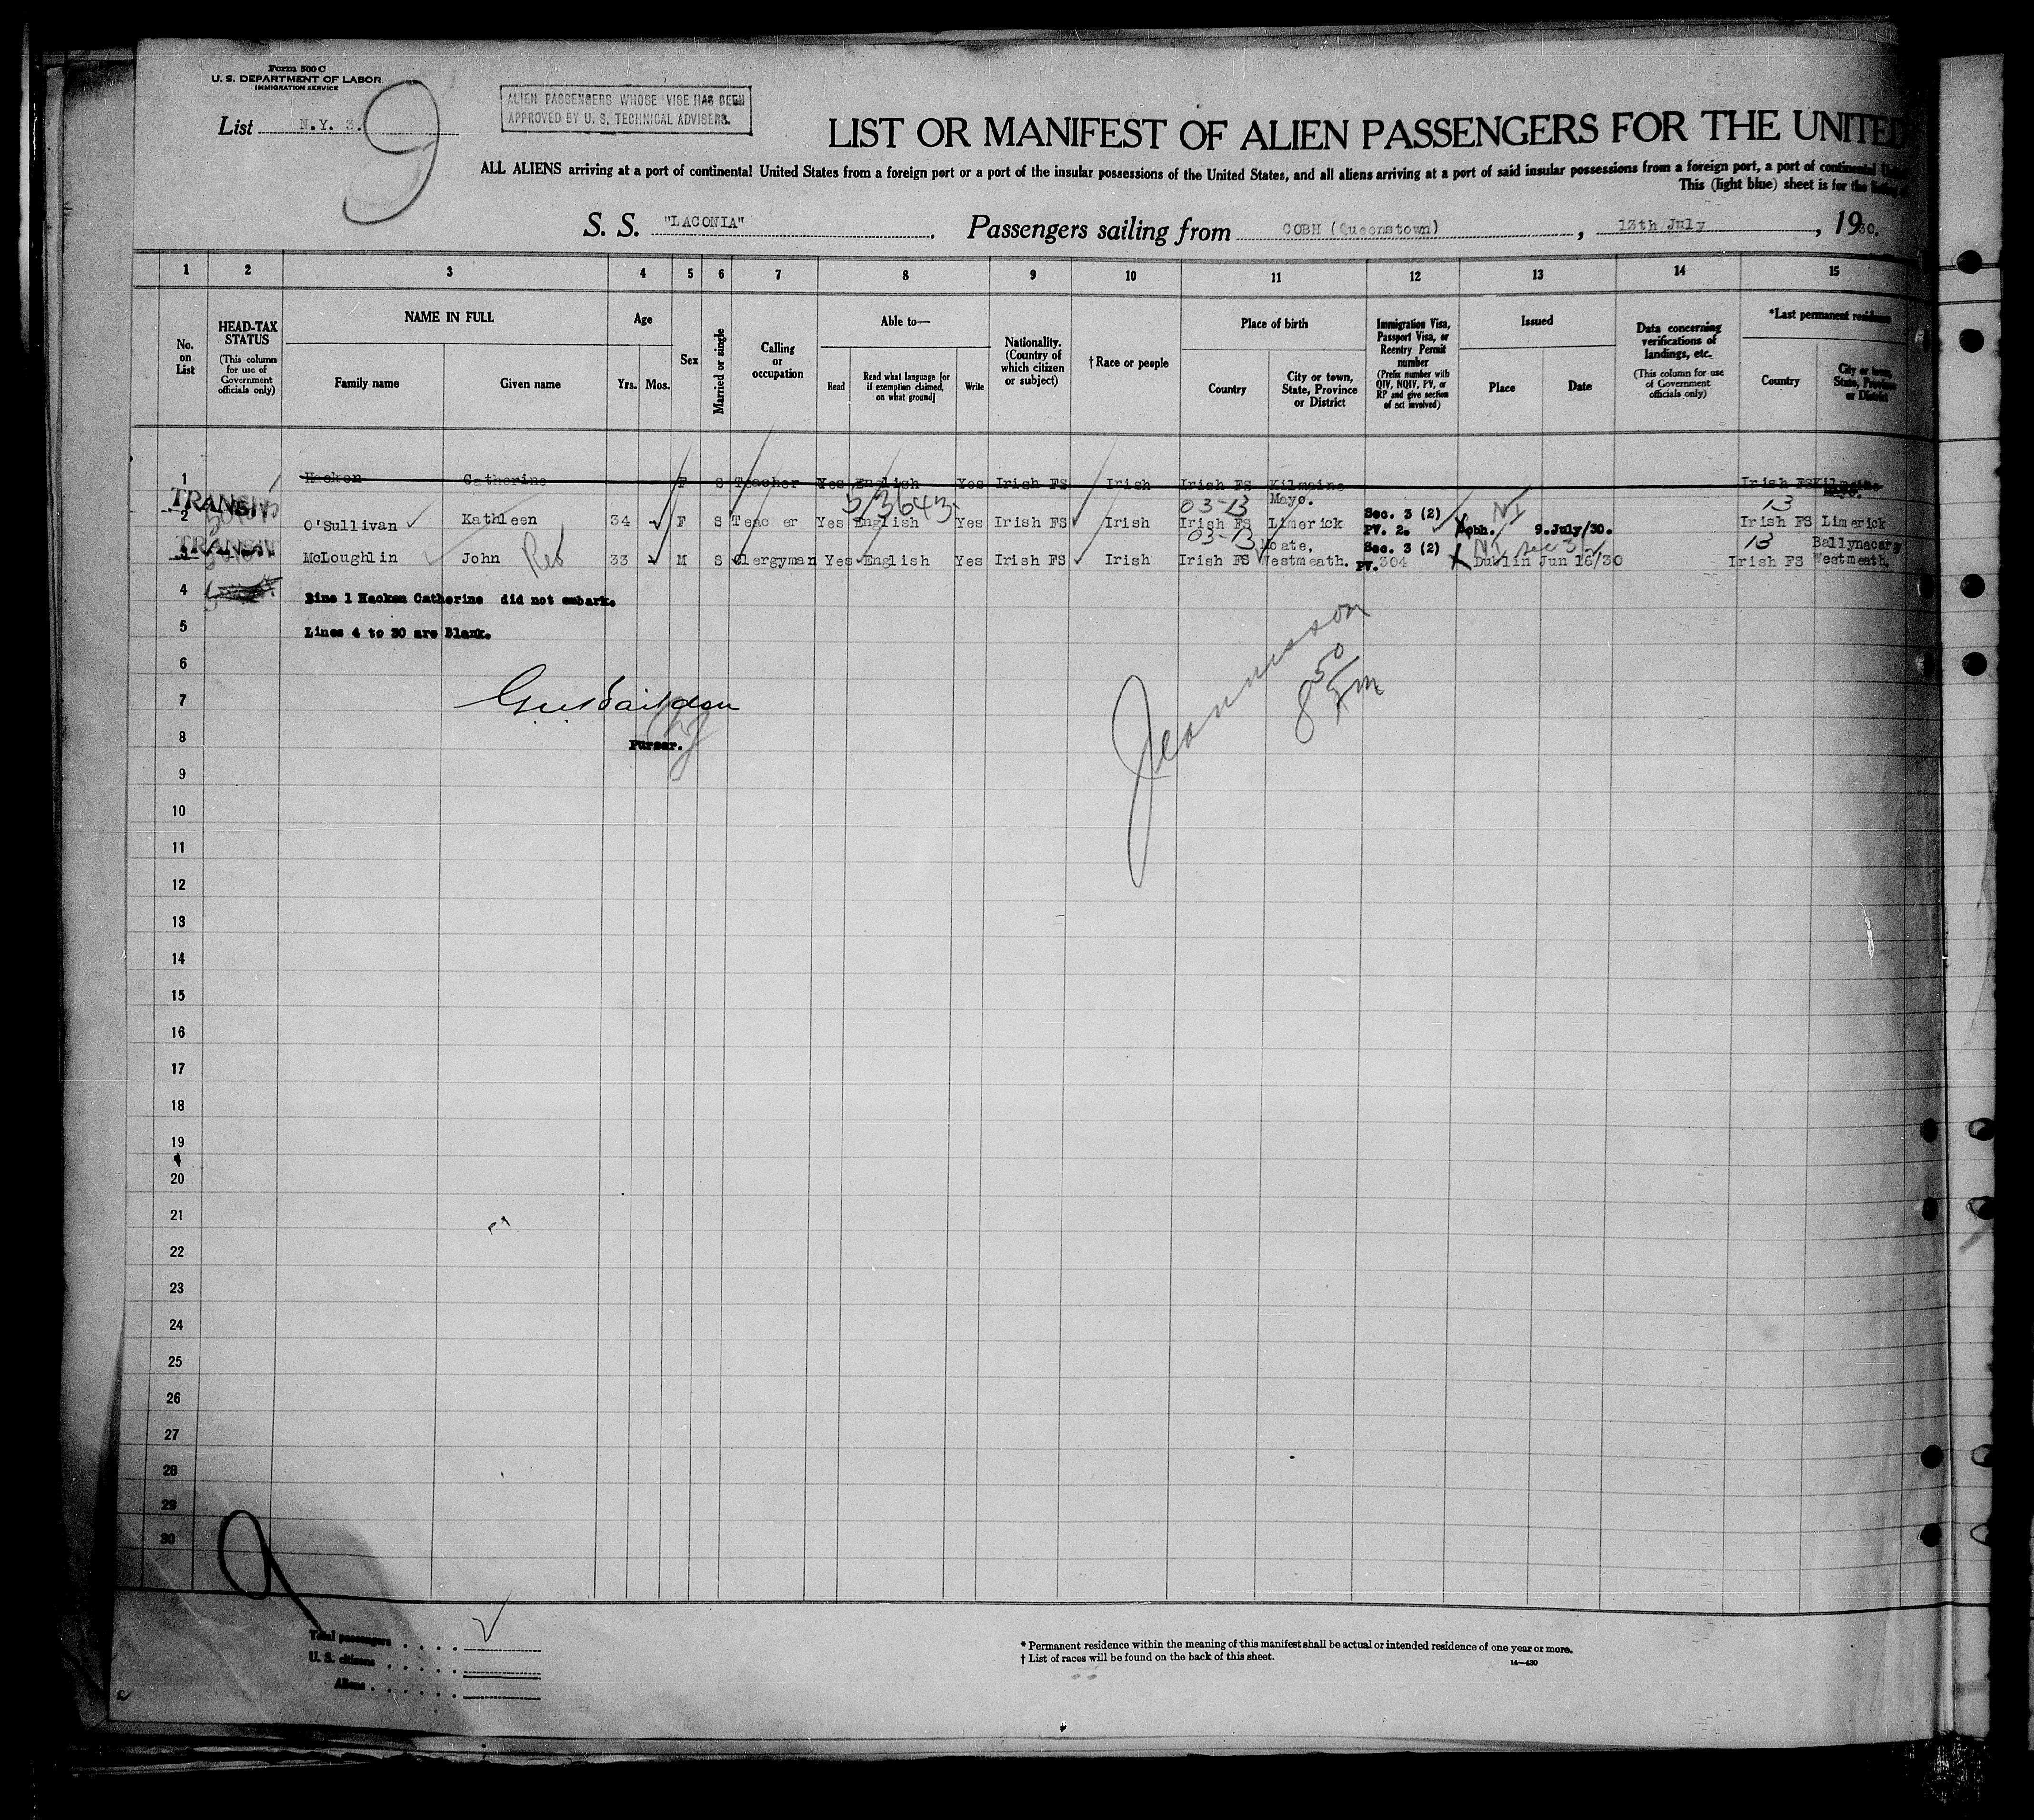 Form 500 C
U. S. DEPARTMENT OF LABOR
IMMIGRATION SERVICE
List N.Y. 3. 9
ALIEN PASSENGERS WHOSE VISE HAS BEEN
APPROVED BY U. S. TECHNICAL ADVISERS.
LIST OR MANIFEST OF ALIEN PASSENGERS FOR THE UNITED
ALL ALIENS arriving at a port of continental United States from a foreign port or a port of the insular possessions of the United States, and all aliens arriving at a port of said insular possessions from a foreign port, a port of continental
This (light blue) sheet is for the listing of
S. S. "LACONIA". Passengers sailing from COBH (Queenstown), 13th July, 1930.
1 2 3 4 5 6 7 8 9 10 11 12 13 14 15
No. on List
HEAD-TAX STATUS (This column for use of Government officials only)
NAME IN FULL Family name Given name
Age Yrs. Mos.
Sex
Married or single
Calling or occupation
Able to— Read Read what language [or if exemption claimed, on what ground] Write
Nationality. (Country of which citizen or subject)
† Race or people
Place of birth Country City or town, State, Province or District
Immigration Visa, Passport Visa, or Reentry Permit number (Prefix number with QIV, NQIV, PV, or RP and give section of act involved)
Issued Place Date
Data concerning verifications of landings, etc. (This column for use of Government officials only)
*Last permanent residence Country City or town, State, Province or District
1 Hacken Catherine F S Teacher Yes English Yes Irish FS Irish Irish FS Kilmaine Mayo. Irish FS Kilmaine Mayo.
TRANSIT
5/3643 03-13 NI 13
2 O'Sullivan Kathleen 34 F S Teacher Yes English Yes Irish FS Irish Irish FS Limerick Sec. 3 (2) PV. 2. Cobh. 9.July/30. Irish FS Limerick
TRANSIT
03-13 NI Sec 3 13
3 McLoughlin John 33 M S Clergyman Yes English Yes Irish FS Irish Irish FS Moate, Westmeath. Sec. 3 (2) PV. 304 Dublin Jun 16/30 Irish FS Ballynacargy Westmeath.
4 Line 1 Hacken Catherine did not embark.
5 Lines 4 to 30 are Blank.
6
7
8 Purser.
8 50
9
10
11
12
13
14
15
16
17
18
19
20
21
22
23
24
25
26
27
28
29
30
9
Total passengers
U. S. citizens
Aliens
* Permanent residence within the meaning of this manifest shall be actual or intended residence of one year or more.
† List of races will be found on the back of this sheet.
14—430